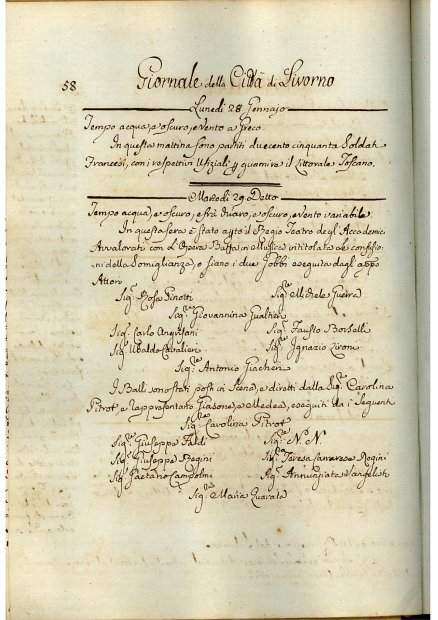 58
Giornale della Città di Livorno
Lunedi 28 Gennajo
Tempo acqua, e oscuro, e Vento a Greco.
In questa mattina sono partiti duecento cinquanta Soldati
Francesi, con i respettivi Ufiziali p guarnire il Littorale Toscano.
Martedi 29 Detto
Tempo acqua, e oscuro, e frà chiaro, e oscuro, e Vento variabile.
In questa sera è stato apto il Regio Teatro degl' Accademici
Avvalorati con l'Opera Buffa in Musica intitolata le confusio-
ni della Somiglianza, o siano i due Gobbi eseguita dagl' appo
Attori
Sigra Rosa Pinotti
Sigre Michele Guerra
Sigra Giovannina Gualtieri
Sigre Carlo Angrisani
Sigre Fausto Borselli
Sigre Ubaldo Cavalieri
Sigre Ignazio Zironi
Sigre Antonio Giacheri
I Balli sono stati posti in Scena, e diretti dalla Sigra Carolina
Pitrot e rappresentato Giasone, e Medea, eseguiti da i Seguenti
Sigra Carolina Pitrot
Sigre Giuseppe Taldi
Sigra N. N.
Sigre Giuseppe Regini
Sigra Teresa Carrarese Regini
Sigre Gaetano Campolmi
Sigra Annunziata Vangelisti
Sigra Maria Quarata